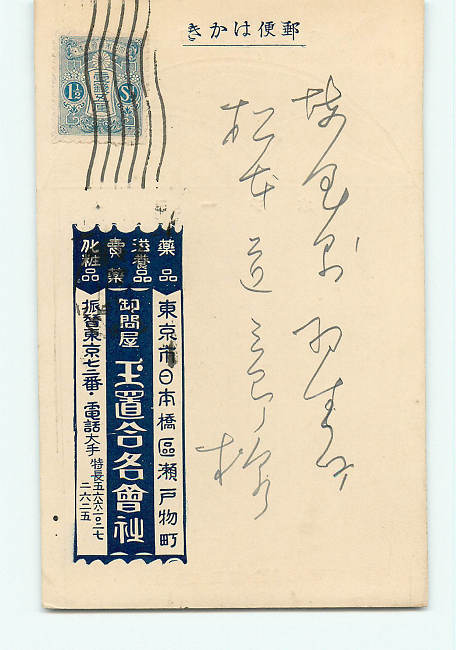 郵便はかき
1½ Sn
埼玉縣 羽生町
松本
様
藥品
滋養品
賣藥
化粧品
東京市日本橋區瀬戸物町
卸問屋 玉置合名會社
振替東京七三番・電話大手 特長五六六一〇二七
二六二五